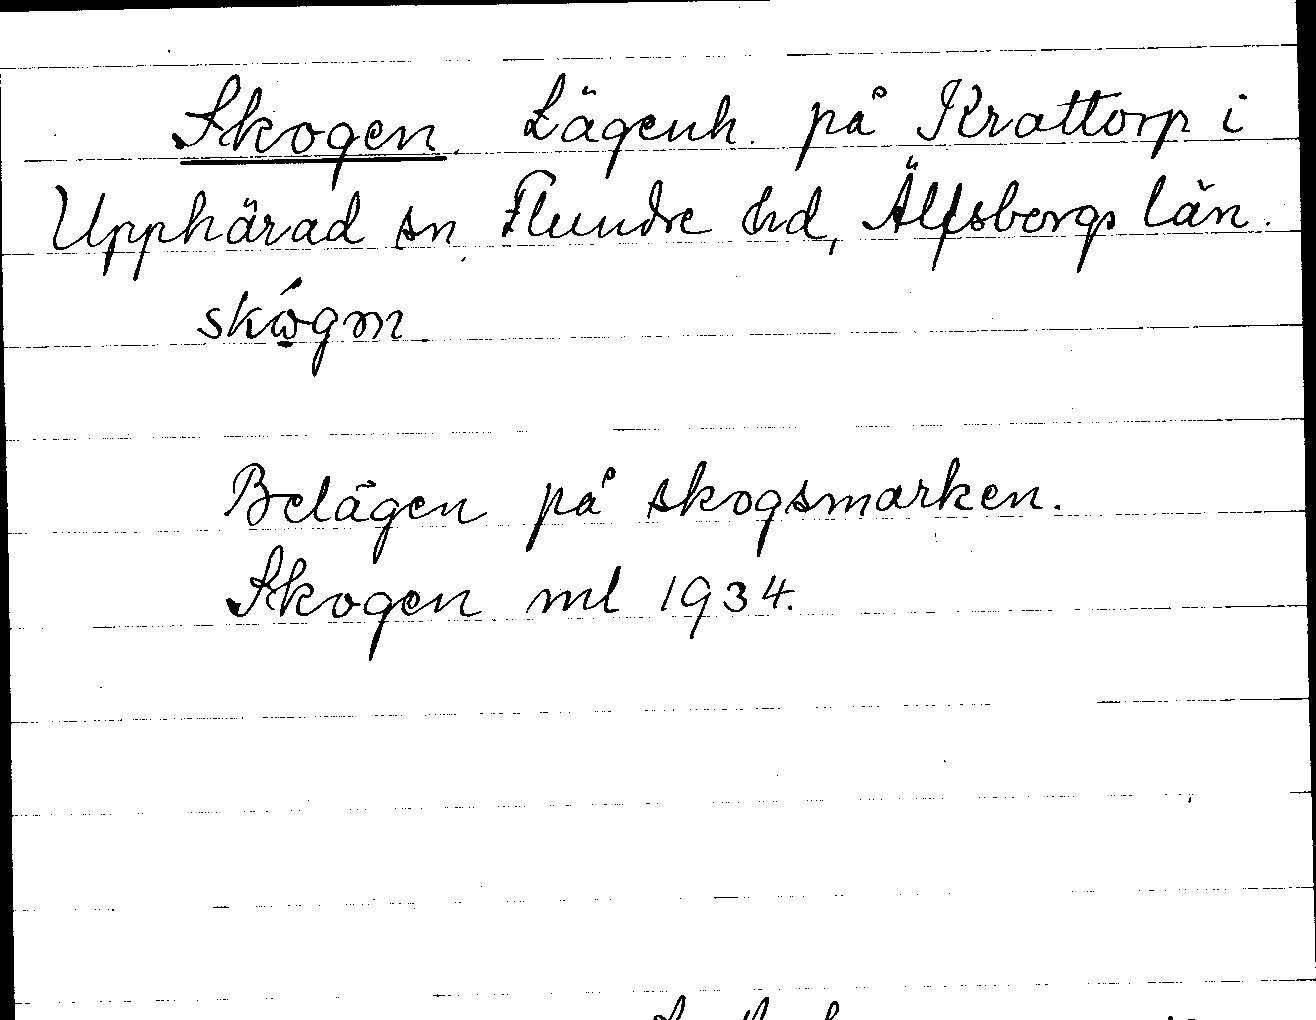 Skogen. Lägenh. på Krattorp i
Upphärad sn, Flundre hd, Älfsborgs län.
skógm
Belägen på skogsmarken.
Skogen ml 1934.